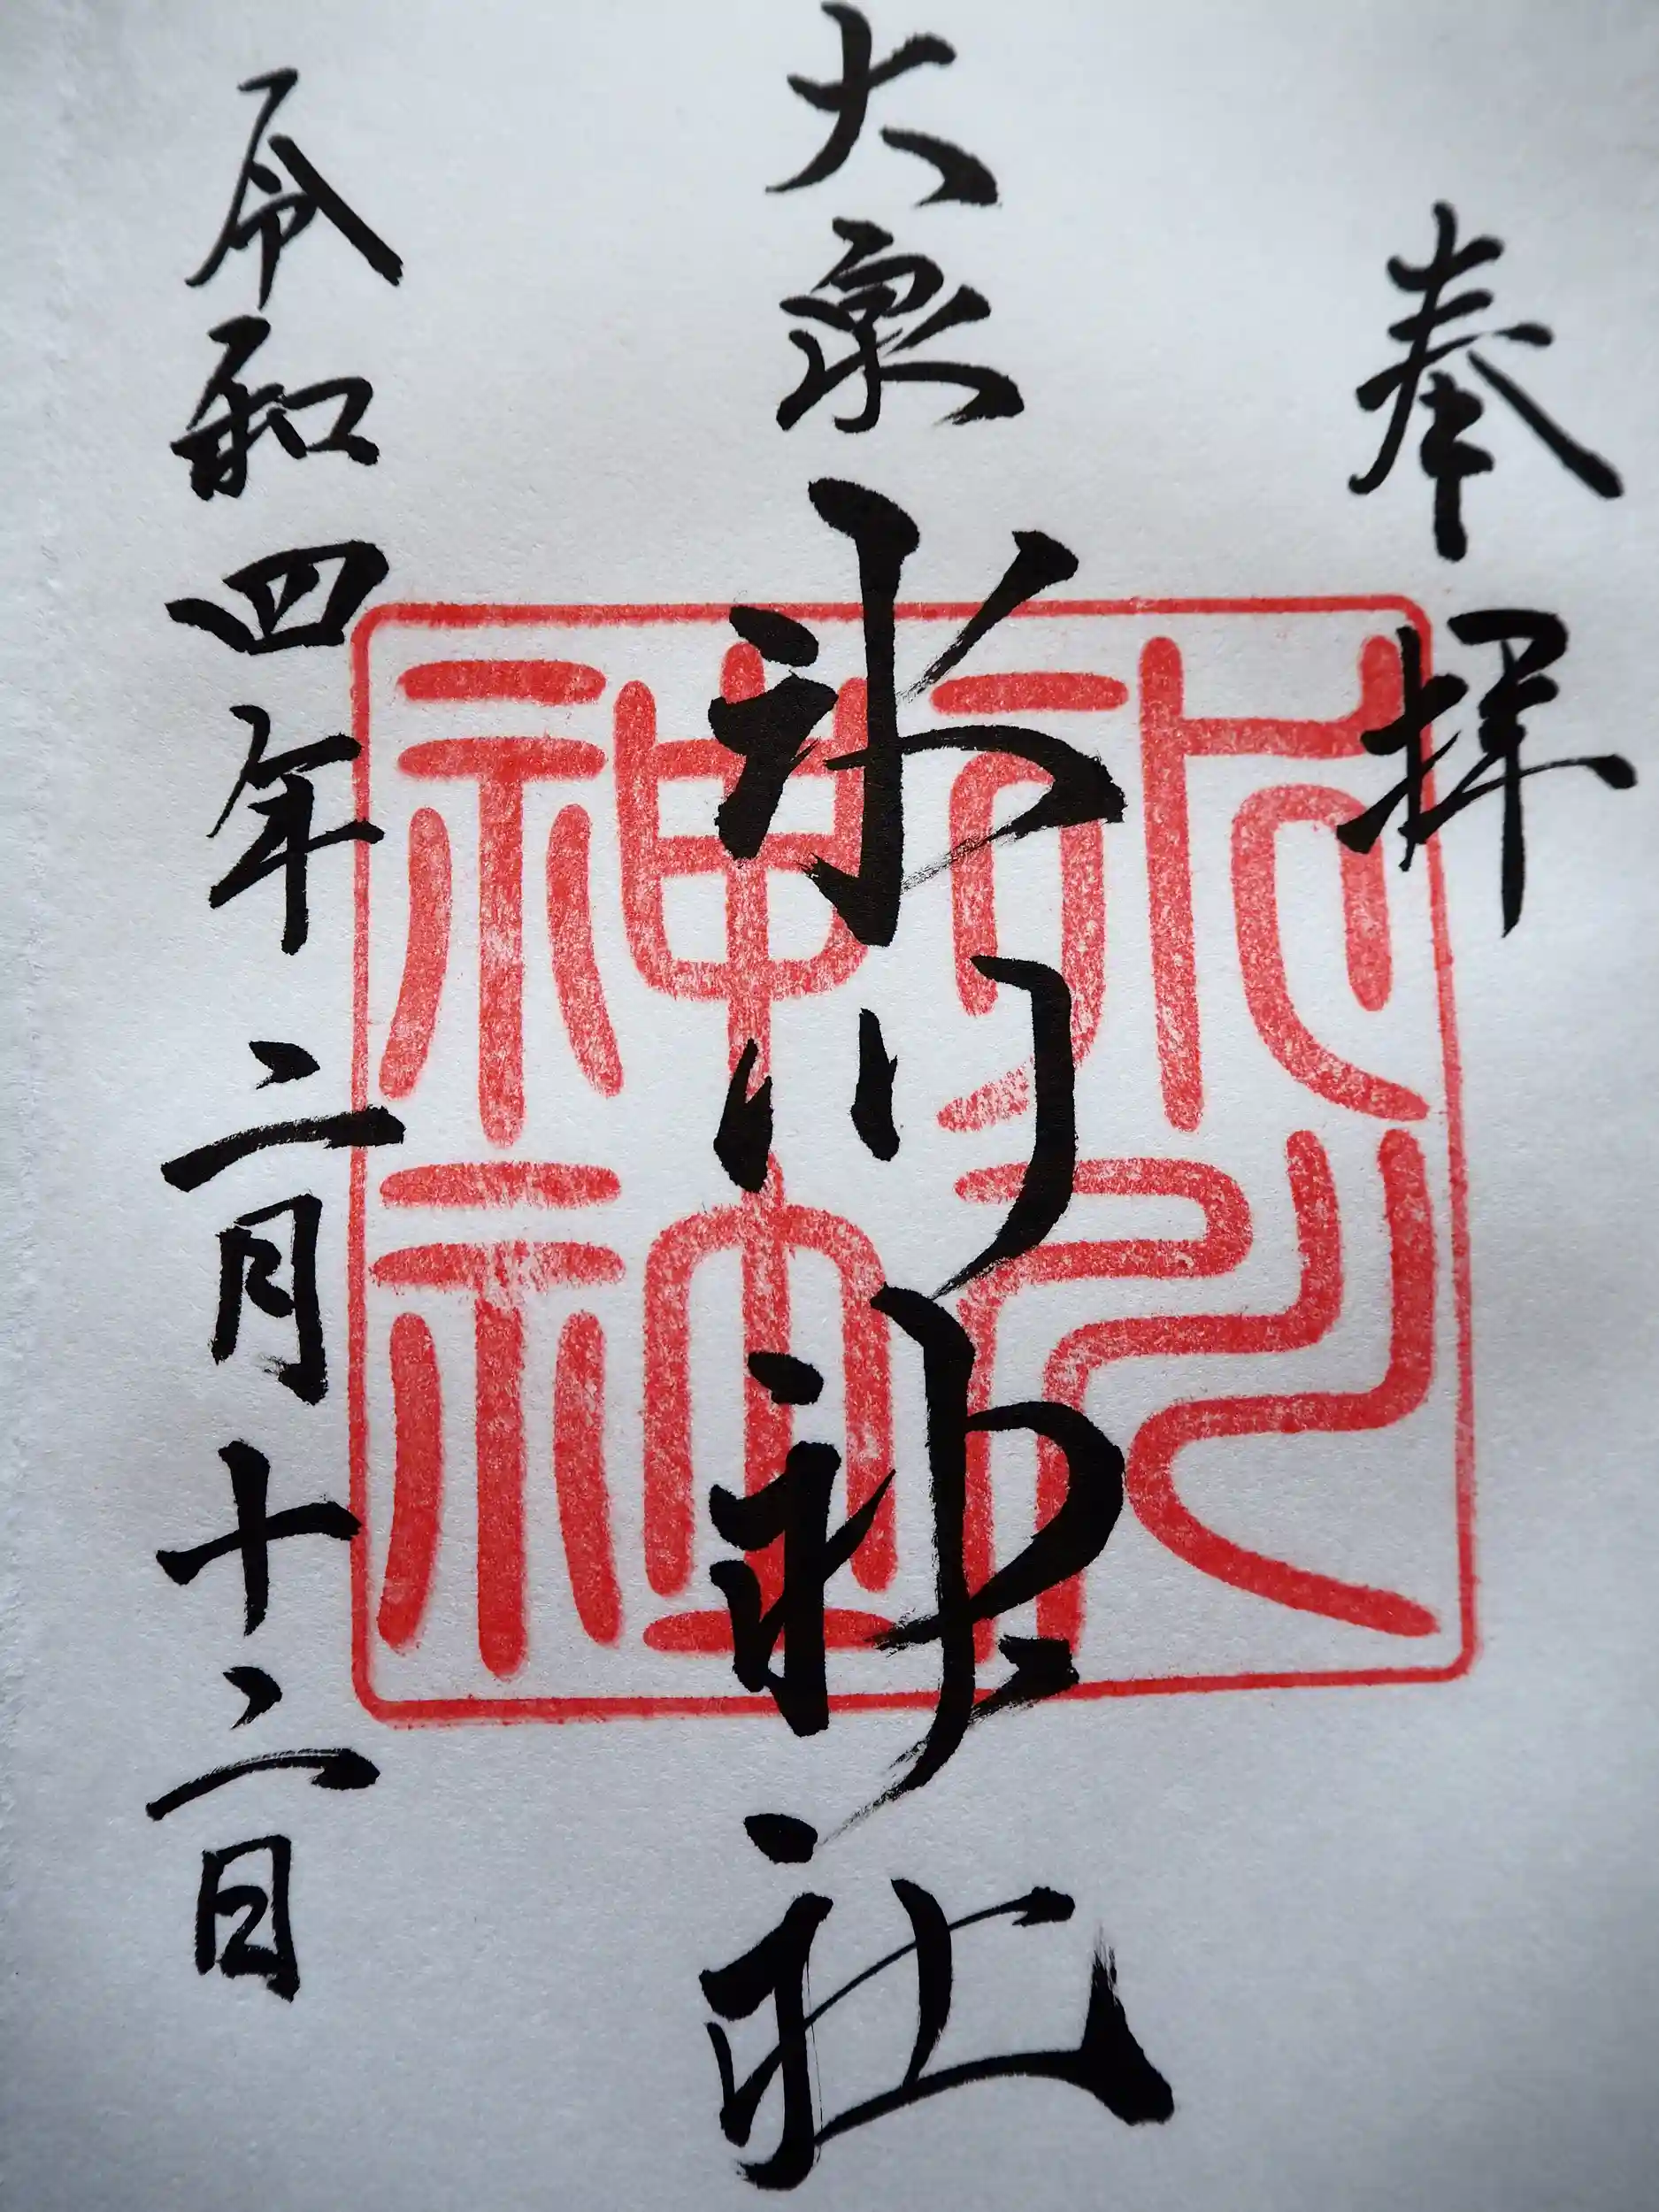 奉拝
大泉氷川神社
令和四年二月十二日
氷川
神社